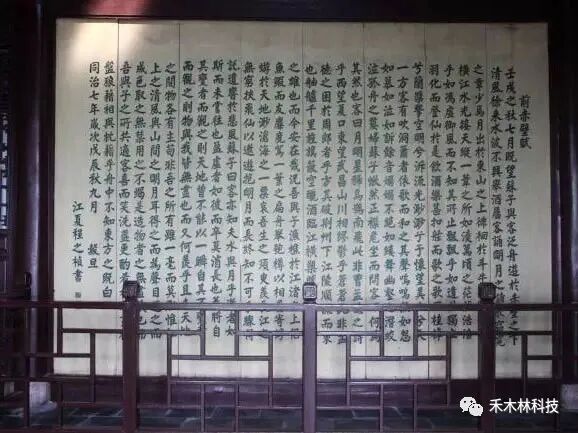 前赤壁賦
壬戌之秋七月既望蘇子與客泛舟遊於赤壁之下
清風徐來水波不興舉酒屬客誦明月之詩歌窈窕
之章少焉月出於東山之上徘徊於斗牛
橫江水光接天縱一葦之所如凌萬頃之茫然浩浩
乎如馮虛御風而不知其所止飄飄乎如遺世獨立
羽化而登仙於是飲酒樂甚扣舷而歌之歌曰桂棹
兮蘭槳擊空明兮泝流光渺渺兮予懷望美人兮天
一方客有吹洞簫者倚歌而和之其聲嗚嗚然如怨
如慕如泣如訴餘音嫋嫋不絕如縷舞幽壑之潛蛟
泣孤舟之嫠婦蘇子愀然正襟危坐而問客曰何為
其然也客曰月明星稀烏鵲南飛此非曹孟德之詩
乎西望夏口東望武昌山川相繆鬱乎蒼蒼此非孟
德之困於周郎者乎方其破荊州下江陵順流而東
也舳艫千里旌旗蔽空釃酒臨江橫槊賦
之雄也而今安在哉況吾與子漁樵於江渚之上侶
魚蝦而友麋鹿駕一葉之扁舟舉匏樽以相屬寄蜉
蝣於天地渺滄海之一粟哀吾生之須臾羨長江之
無窮挾飛仙以遨遊抱明月而長終知不可乎驟得
託遺響於悲風蘇子曰客亦知夫水與月乎逝者如
斯而未嘗往也盈虛者如彼而卒莫消長也蓋將自
其變者而觀之則天地曾不能以一瞬自其不變
而觀之則物與我皆無盡也而又何羨乎且夫天地
之間物各有主苟非吾之所有雖一毫而莫取惟江
上之清風與山間之明月耳得之而為聲目遇之而
成色取之無禁用之不竭是造物者之無盡藏也而
吾與子之所共適客喜而笑洗盞更酌肴
盤狼藉相與枕藉乎舟中不知東方之既白
同治七年歲次戊辰秋九月 穀旦
江夏程之楨書
禾木林科技